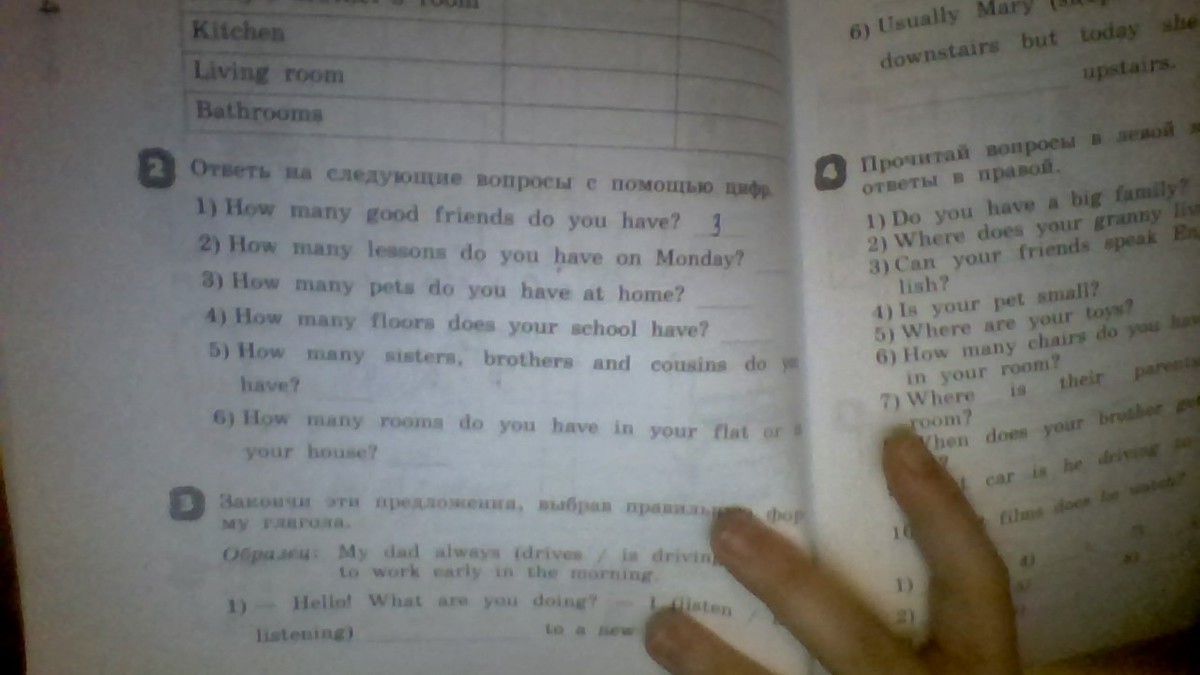 room
Kitchen
Living room
Bathrooms
2 Ответь на следующие вопросы с помощью цифр.
1) How many good friends do you have? 3
2) How many lessons do you have on Monday?
3) How many pets do you have at home?
4) How many floors does your school have?
5) How many sisters, brothers and cousins do
have?
6) How many rooms do you have in your flat or
your house?
3 Закончи эти предложения, выбрав
му глагола.
Образец: My dad always (drives / is
to work early in the morning.
1) — Hello! What are you doing? — I (listen /
listening) to a new
6) Usually Mary
downstairs but today she
upstairs.
4 Прочитай вопросы в левой
ответы в правой.
1) Do you have a big family?
2) Where does your granny
3) Can your friends speak
lish?
4) Is your pet small?
5) Where are your toys?
6) How many chairs do you
in your room?
7) Where is their
room?
When does your brother
car is he driving
films does he watch?
1)
2)